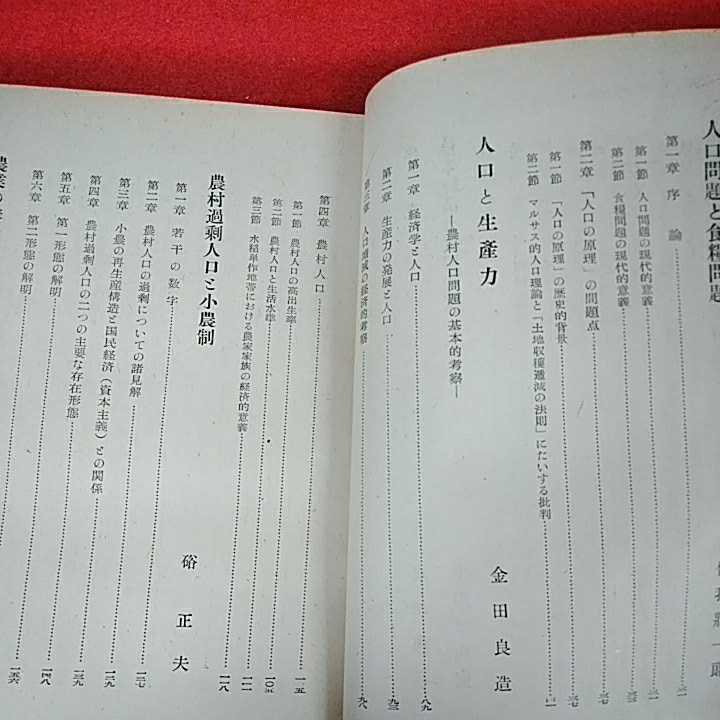 人口問題と食糧問題
第一章 序論
第一節 人口問題の現代的意義
第二節 食糧問題の現代的意義
第二章 「人口の原理」の問題点
第一節 「人口の原理」の歴史的背景
第二節 マルサス的人口理論と「土地収穫逓減の法則」にたいする批判
人口と生産力
―農村人口問題の基本的考察―
金田良造
第一章 経済学と人口 八九
第二章 生産力の発展と人口 九三
第三章 人口増減の経済的考察 九八
第四章 農村人口 一一五
第一節 農村人口の高出生率
第二節 農村人口と生活水準 一〇五
第三節 水稲単作地帯における農家家族の経済的意義 一一一
農村過剰人口と小農制
硲正夫
第一章 若干の数字 一一八
第二章 農村人口の過剰についての諸見解 一二七
第三章 小農の再生産構造と国民経済(資本主義)との関係 一二九
第四章 農村過剰人口の二つの主要な存在形態 一三九
第五章 第一形態の解明 一四八
第六章 第二形態の解明 一五六